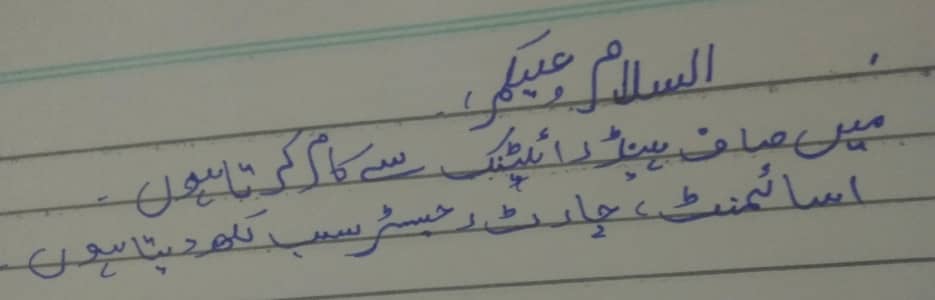 السلام علیکم،
میں صاف ہینڈ رائیٹنگ سے کام کرتا ہوں۔
اسائمنٹ، چارٹ، رجسٹر سب لکھ دیتا ہوں۔